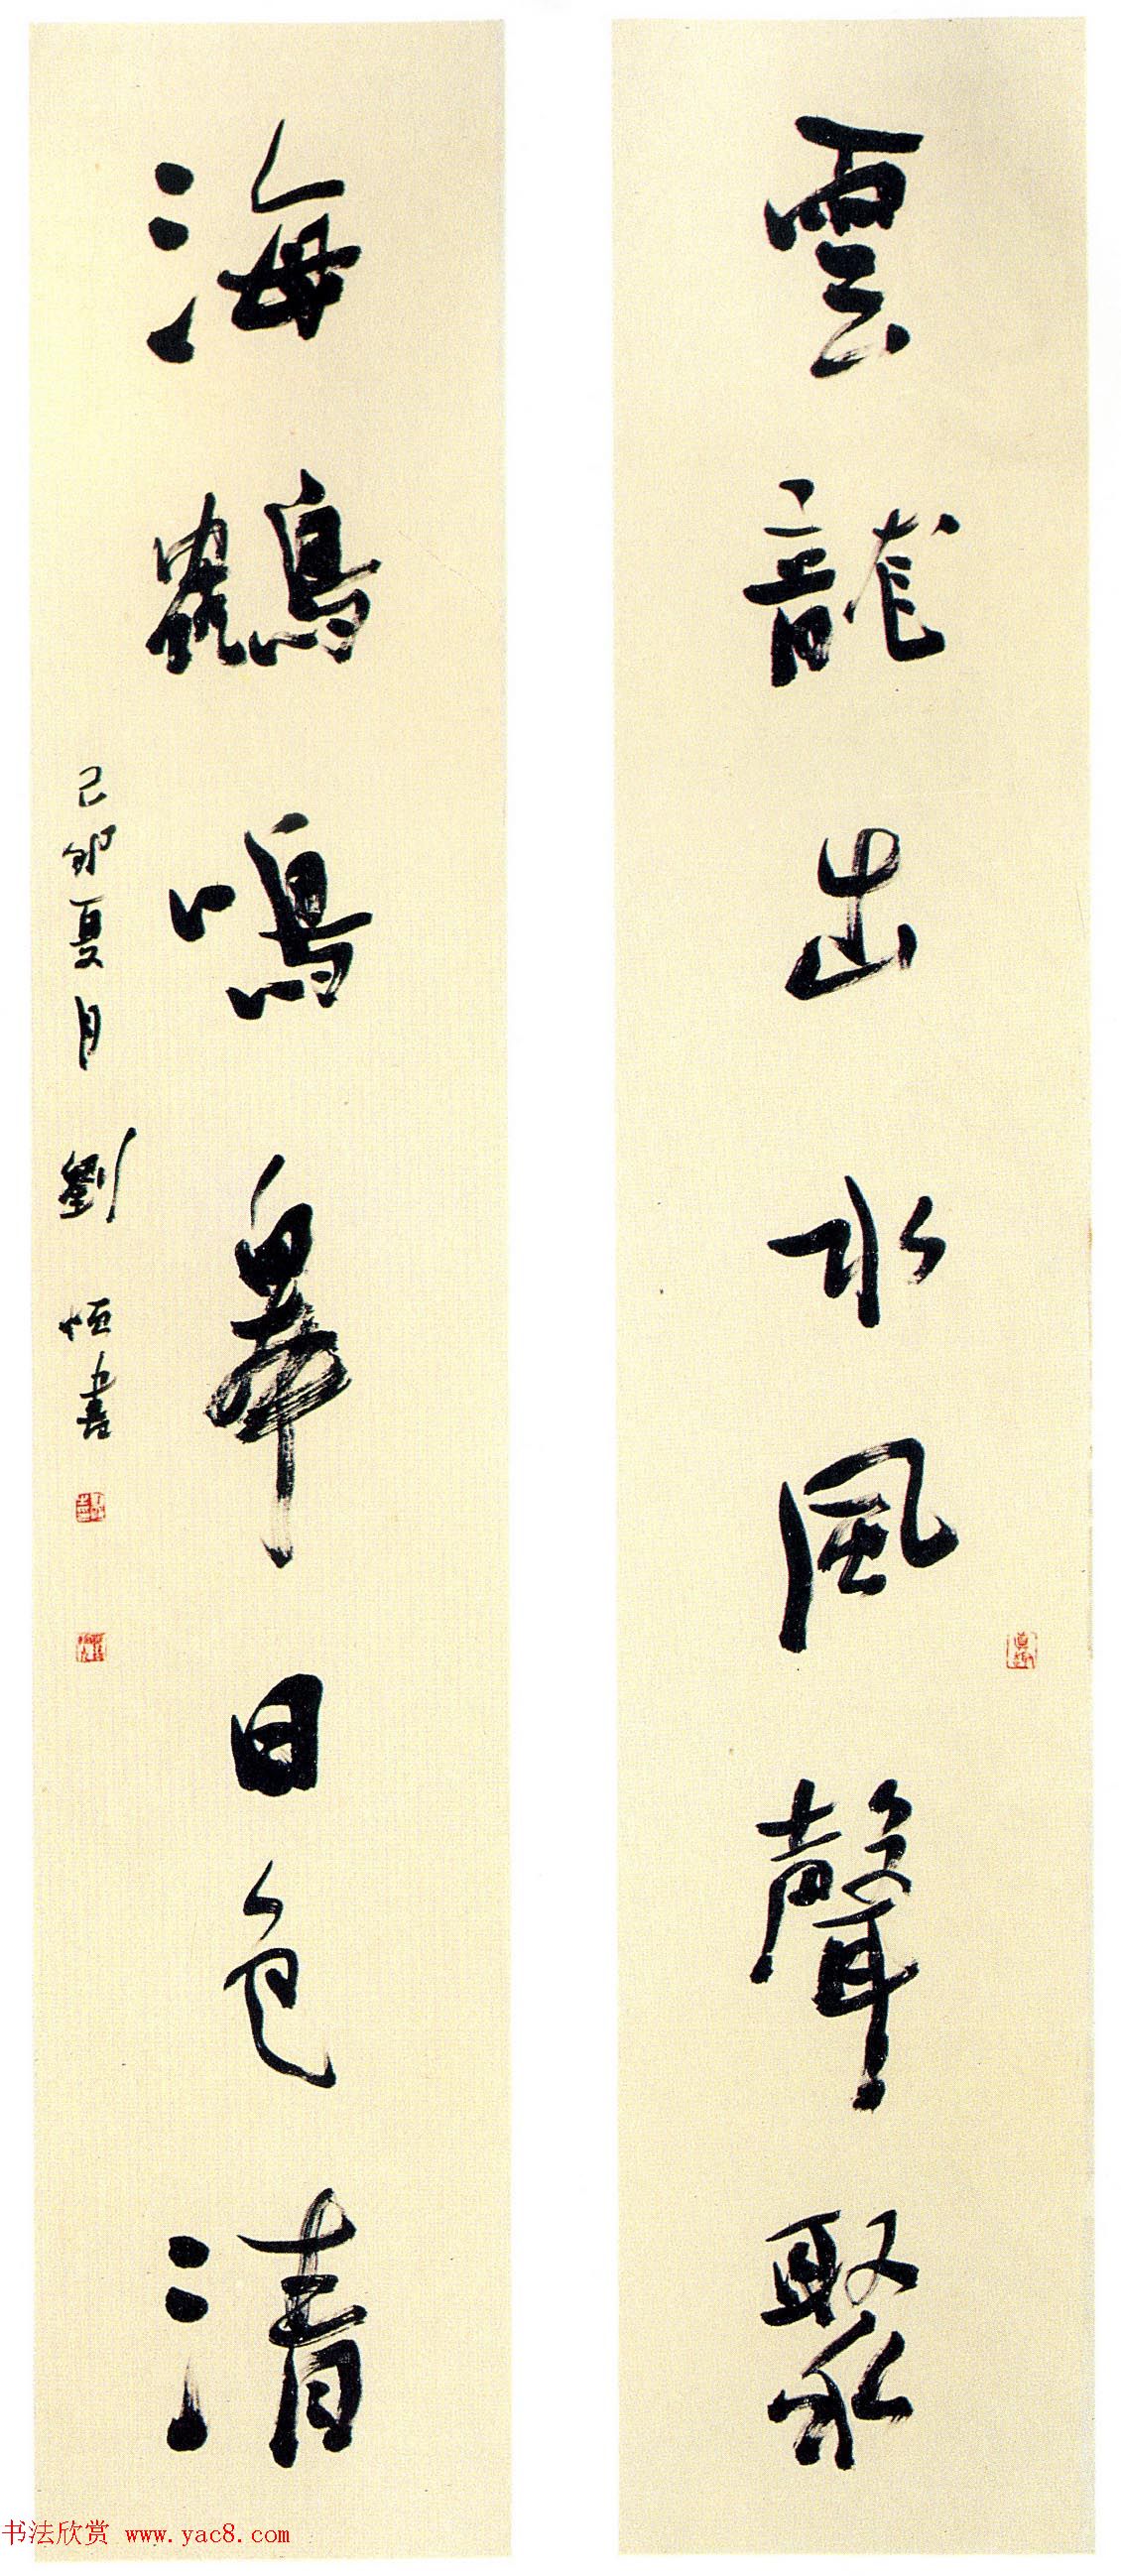 雲龍出水風聲聚
海鶴鳴皋日色清
己卯夏月 劉恒書
书法欣赏 www.yac8.com